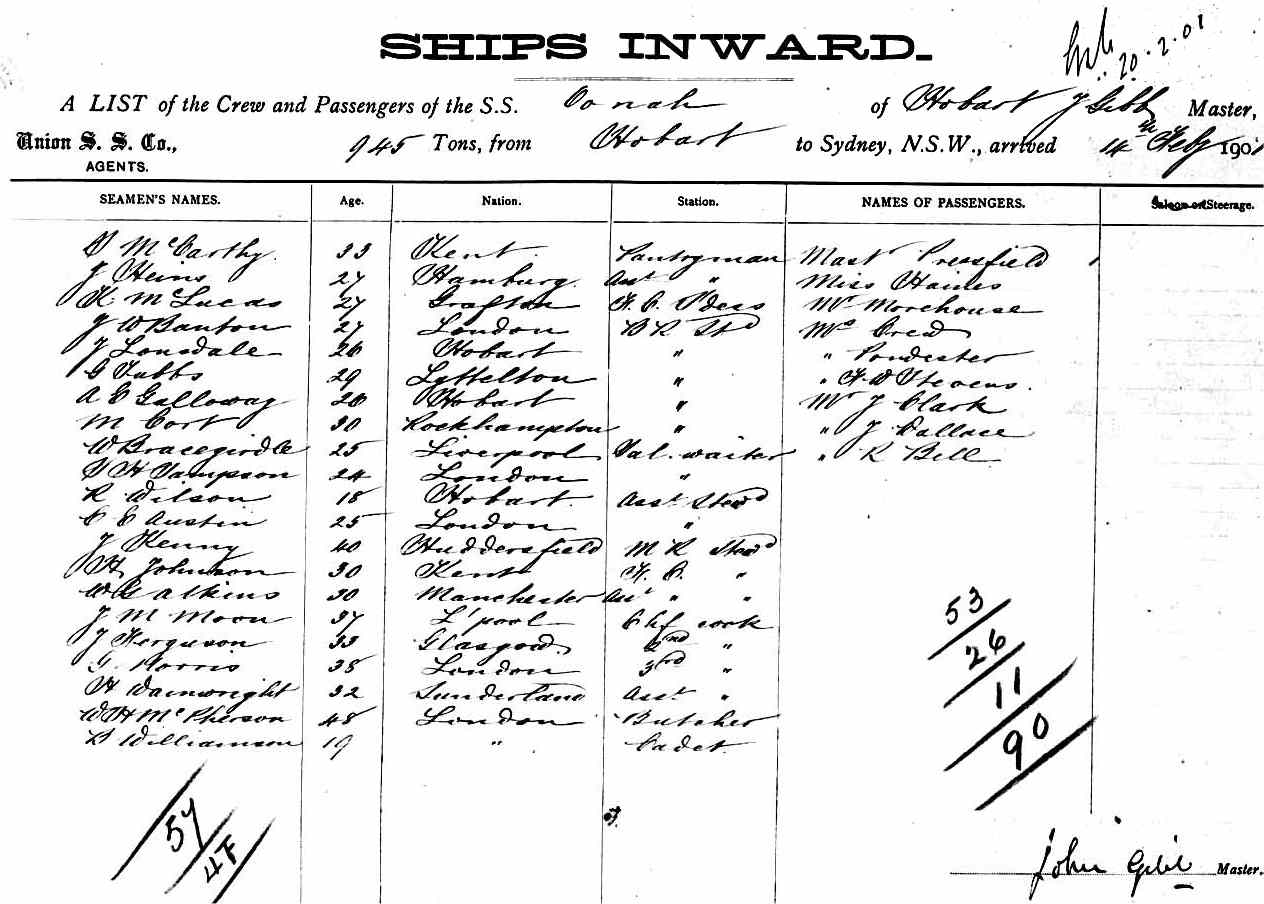 SHIPS INWARD.
20.2.01
A LIST of the Crew and Passengers of the S.S. Oonah of Hobart J Gibb Master,
Union S. S. Co., 945 Tons, from Hobart to Sydney, N.S.W., arrived 14th Feby 1901
AGENTS.
SEAMEN'S NAMES. Age. Nation. Station. NAMES OF PASSENGERS. Steerage.
McCarthy 33 Kent Pantryman Mast
J Heins 27 Hamburg Asst " Miss Haines
McLucas 27 Grafton F. C. Mr Morehouse
J W Banton 27 London B R Std Crew
J Lonsdale 26 Hobart " "
G Tubbs 29 Lyttelton " " Stevens
A E Galloway 26 Hobart " Mr J Clark
M Cort 30 Rockhampton " " J Wallace
W Bracegirdle 25 Liverpool Sal. waiter " R Bell
H Sampson 24 London "
R Wilson 18 Hobart Asst Stewd
C E Austin 25 London "
J Kenny 40 Huddersfield M R Stewd
H Johnson 30 Kent F. C. "
W G Atkins 30 Manchester Asst " "
J M Moon 37 L'pool Chf cook
J Ferguson 33 Glasgow 2nd "
G. Norris 38 London 3rd "
H Wainwright 32 Sunderland Asst "
W H McPherson 48 London Butcher
B Williamson 19 " Cadet
53
26
11
90
57
John Gibb Master.